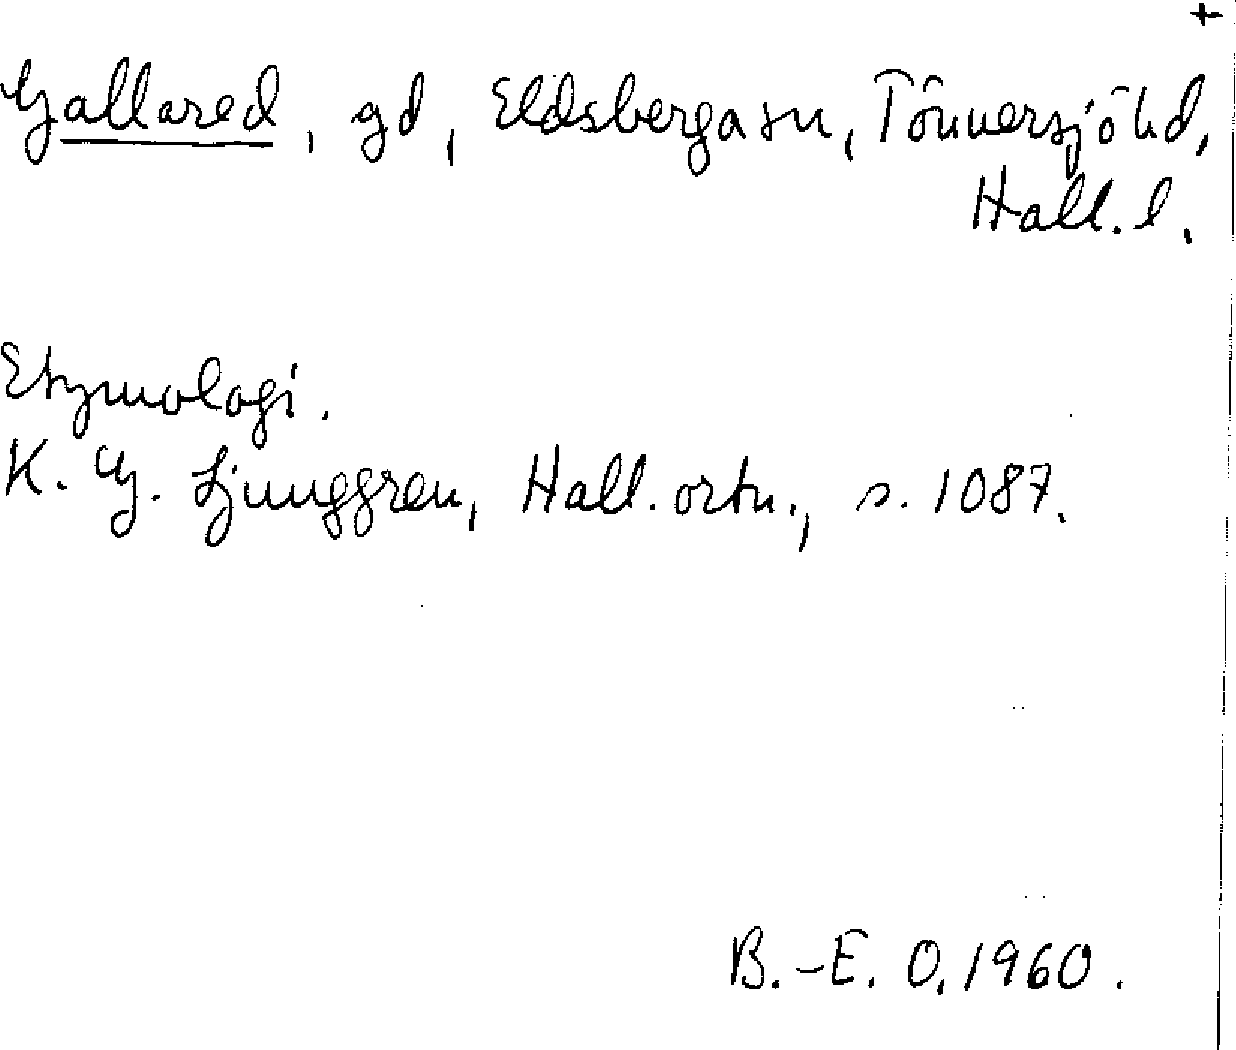 +
Gallared, gd, Eldsberga sn, Tönnersjö hd,
Hall. l.
Etymologi.
K. G. Ljunggren, Hall. ortn., s. 1087.
B.-E. O. 1960.